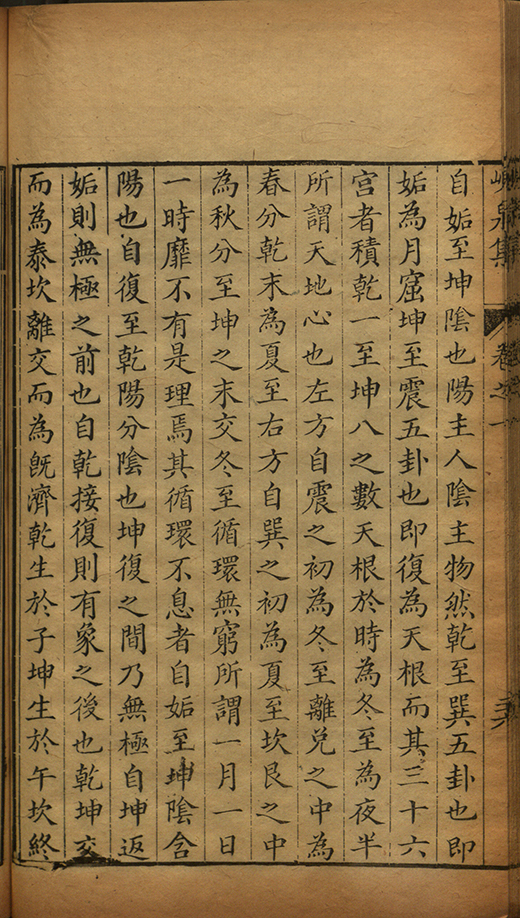 泉集
卷之一
自姤至坤陰也陽主人陰主物然乾至巽五卦也即
姤為月窟坤至震五卦也即復為天根而其三十六
宮者積乾一至坤八之數天根於時為冬至為夜半
所謂天地心也左方自震之初為冬至離兌之中為
春分乾末為夏至右方自巽之初為夏至坎艮之中
為秋分至坤之末交冬至循環無窮所謂一月一日
一時靡不有是理焉其循環不息者自姤至坤陰含
陽也自復至乾陽分陰也坤復之間乃無極自坤返
姤則無極之前也自乾接復則有象之後也乾坤交
而為泰坎離交而為既濟乾生於子坤生於午坎終